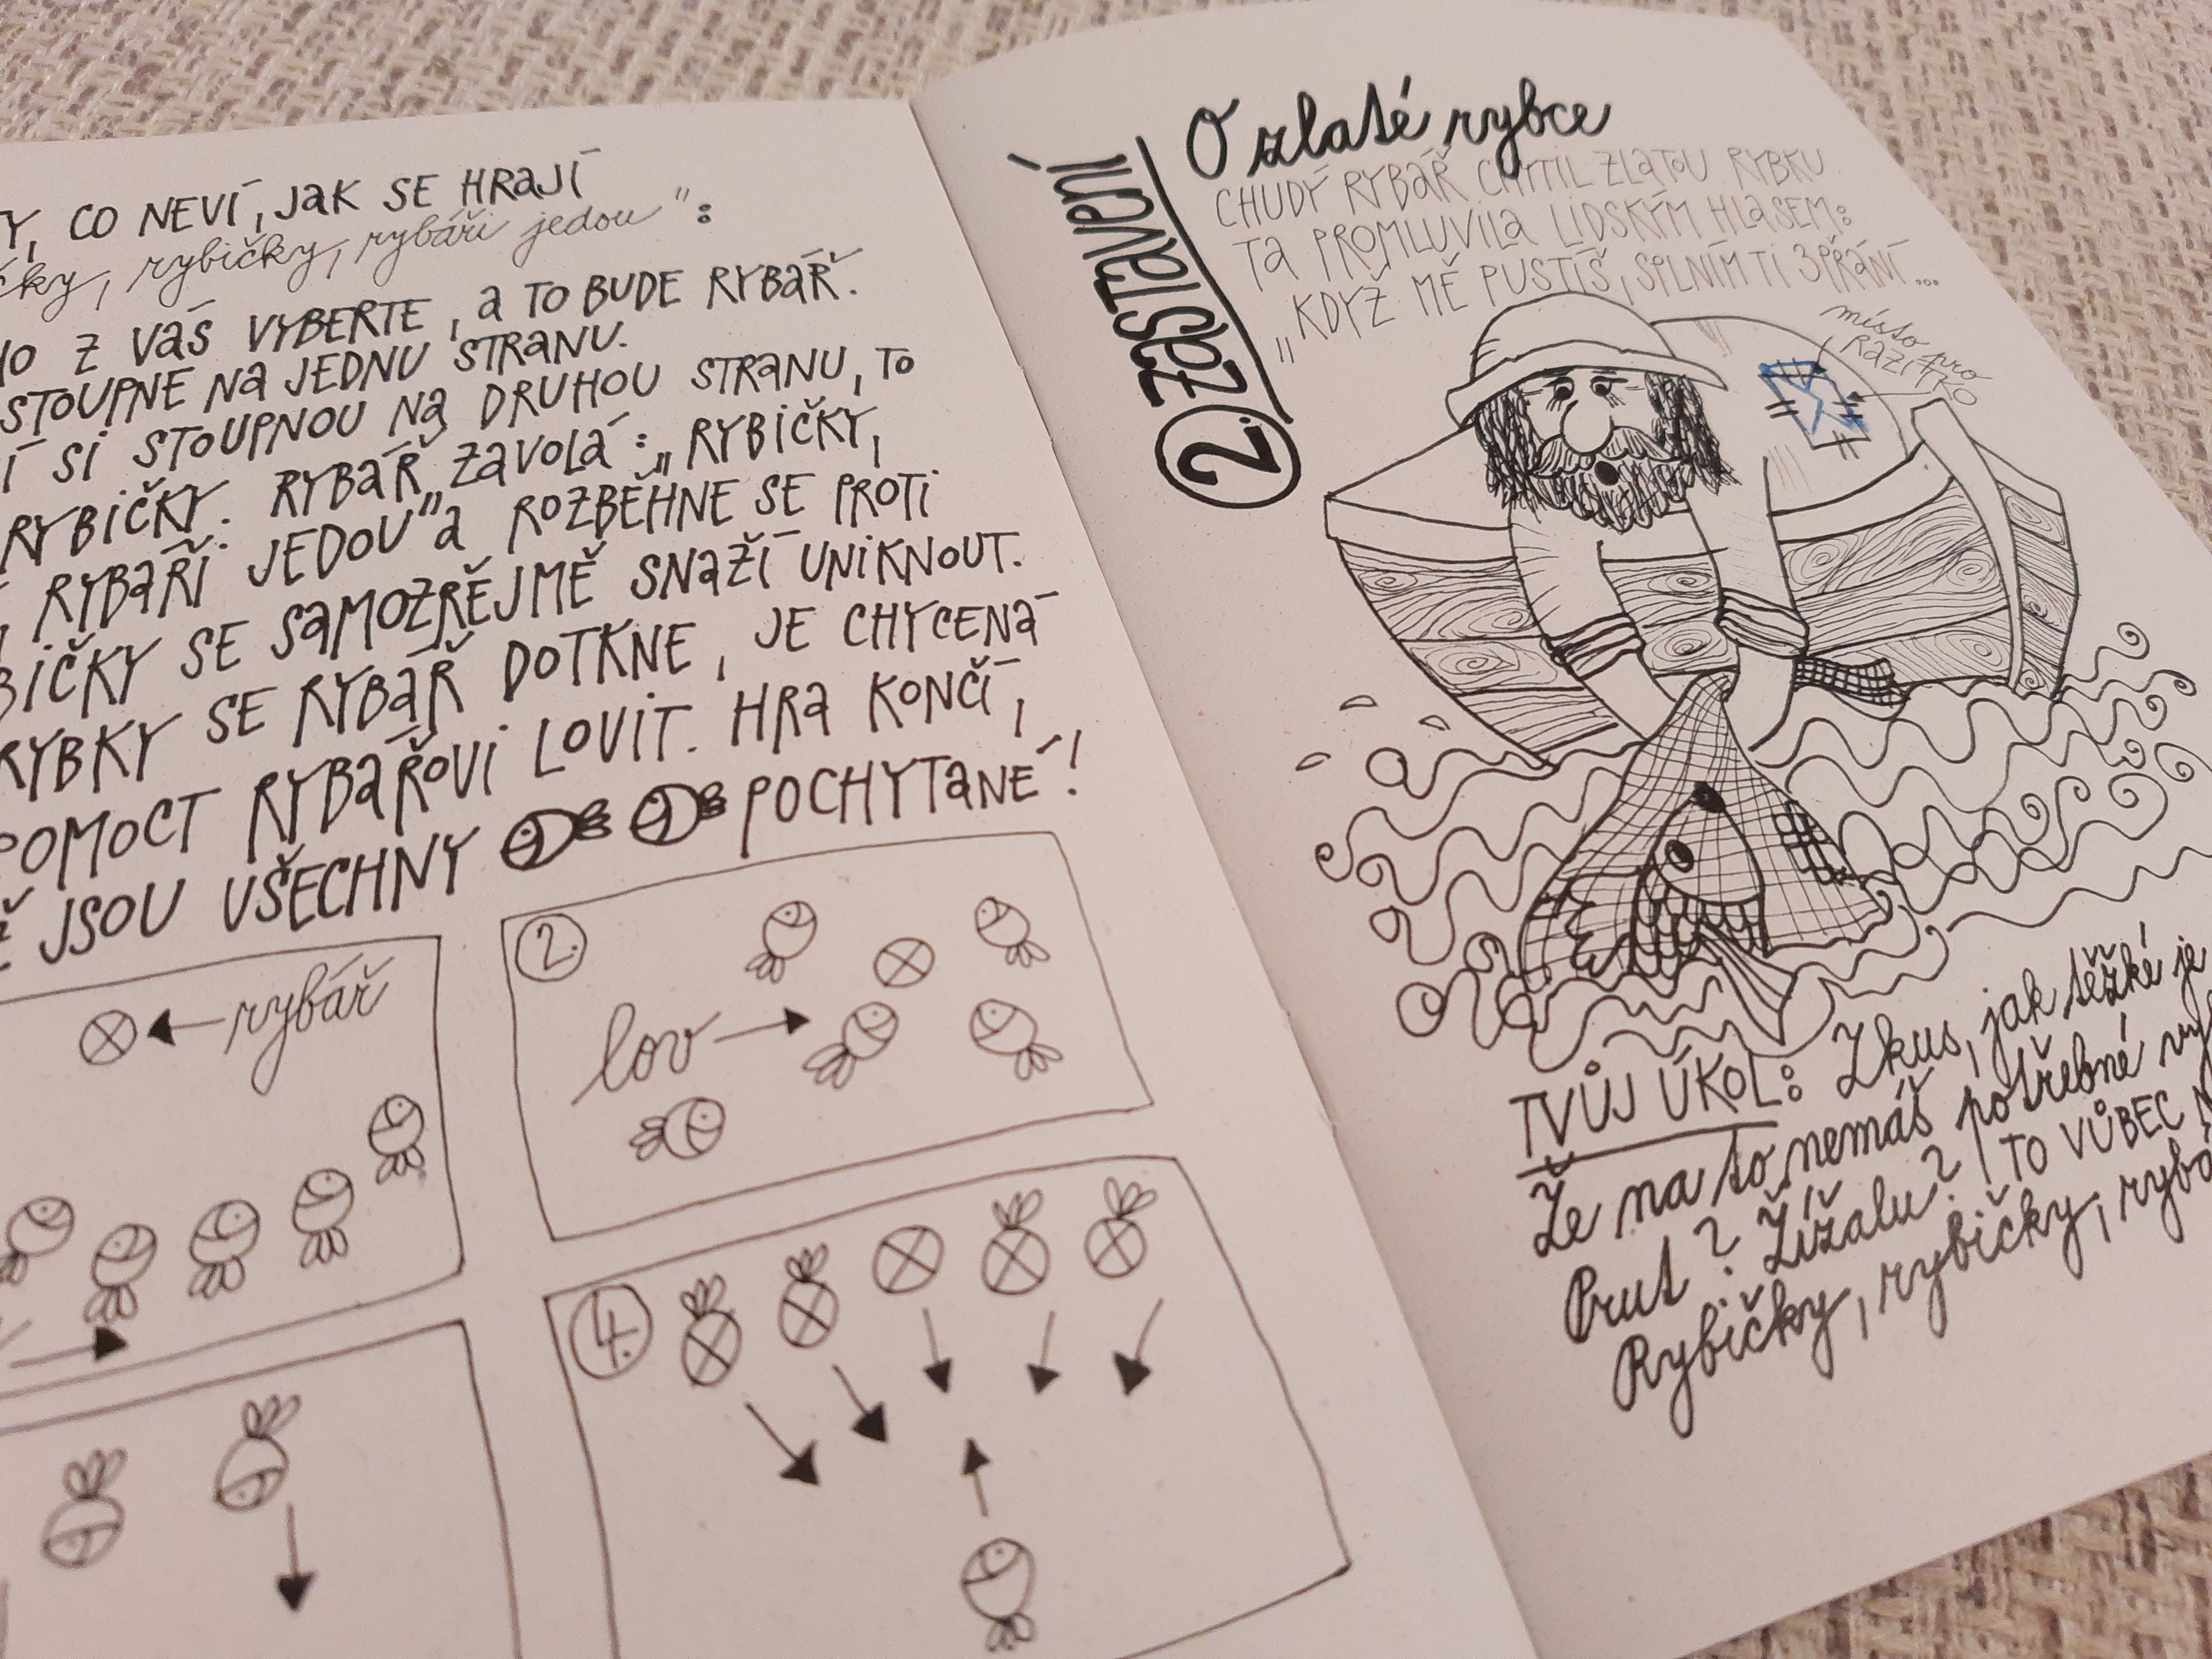 Y, CO NEVÍ, JAK SE HRAJÍ
rybičky, rybáři jedou":
Z VÁS VYBERTE, A TO BUDE RYBÁŘ.
STOUPNE NA JEDNU STRANU.
SI STOUPNOU NA DRUHOU STRANU, TO
RYBIČKY. RYBÁŘ ZAVOLÁ: „RYBIČKY,
RYBÁŘI JEDOU" A ROZBĚHNE SE PROTI
SE SAMOZŘEJMĚ SNAŽÍ UNIKNOUT.
RYBKY SE RYBÁŘ DOTKNE, JE CHYCENÁ
POMOCT RYBÁŘOVI LOVIT. HRA KONČÍ,
JSOU VŠECHNY POCHYTANÉ!
rybář
2.
lov
4.
2. ZASTAVENÍ
O zlaté rybce
CHUDÝ RYBÁŘ CHYTIL ZLATOU RYBKU.
TA PROMLUVILA LIDSKÝM HLASEM:
„KDYŽ MĚ PUSTÍŠ, SPLNÍM TI 3 PŘÁNÍ...
místo pro
RAZÍTKO
TVŮJ ÚKOL: Zkus, jak těžké je
Že na to nemáš potřebné
Prut? Žížalu? TO VŮBEC
Rybičky, rybičky,